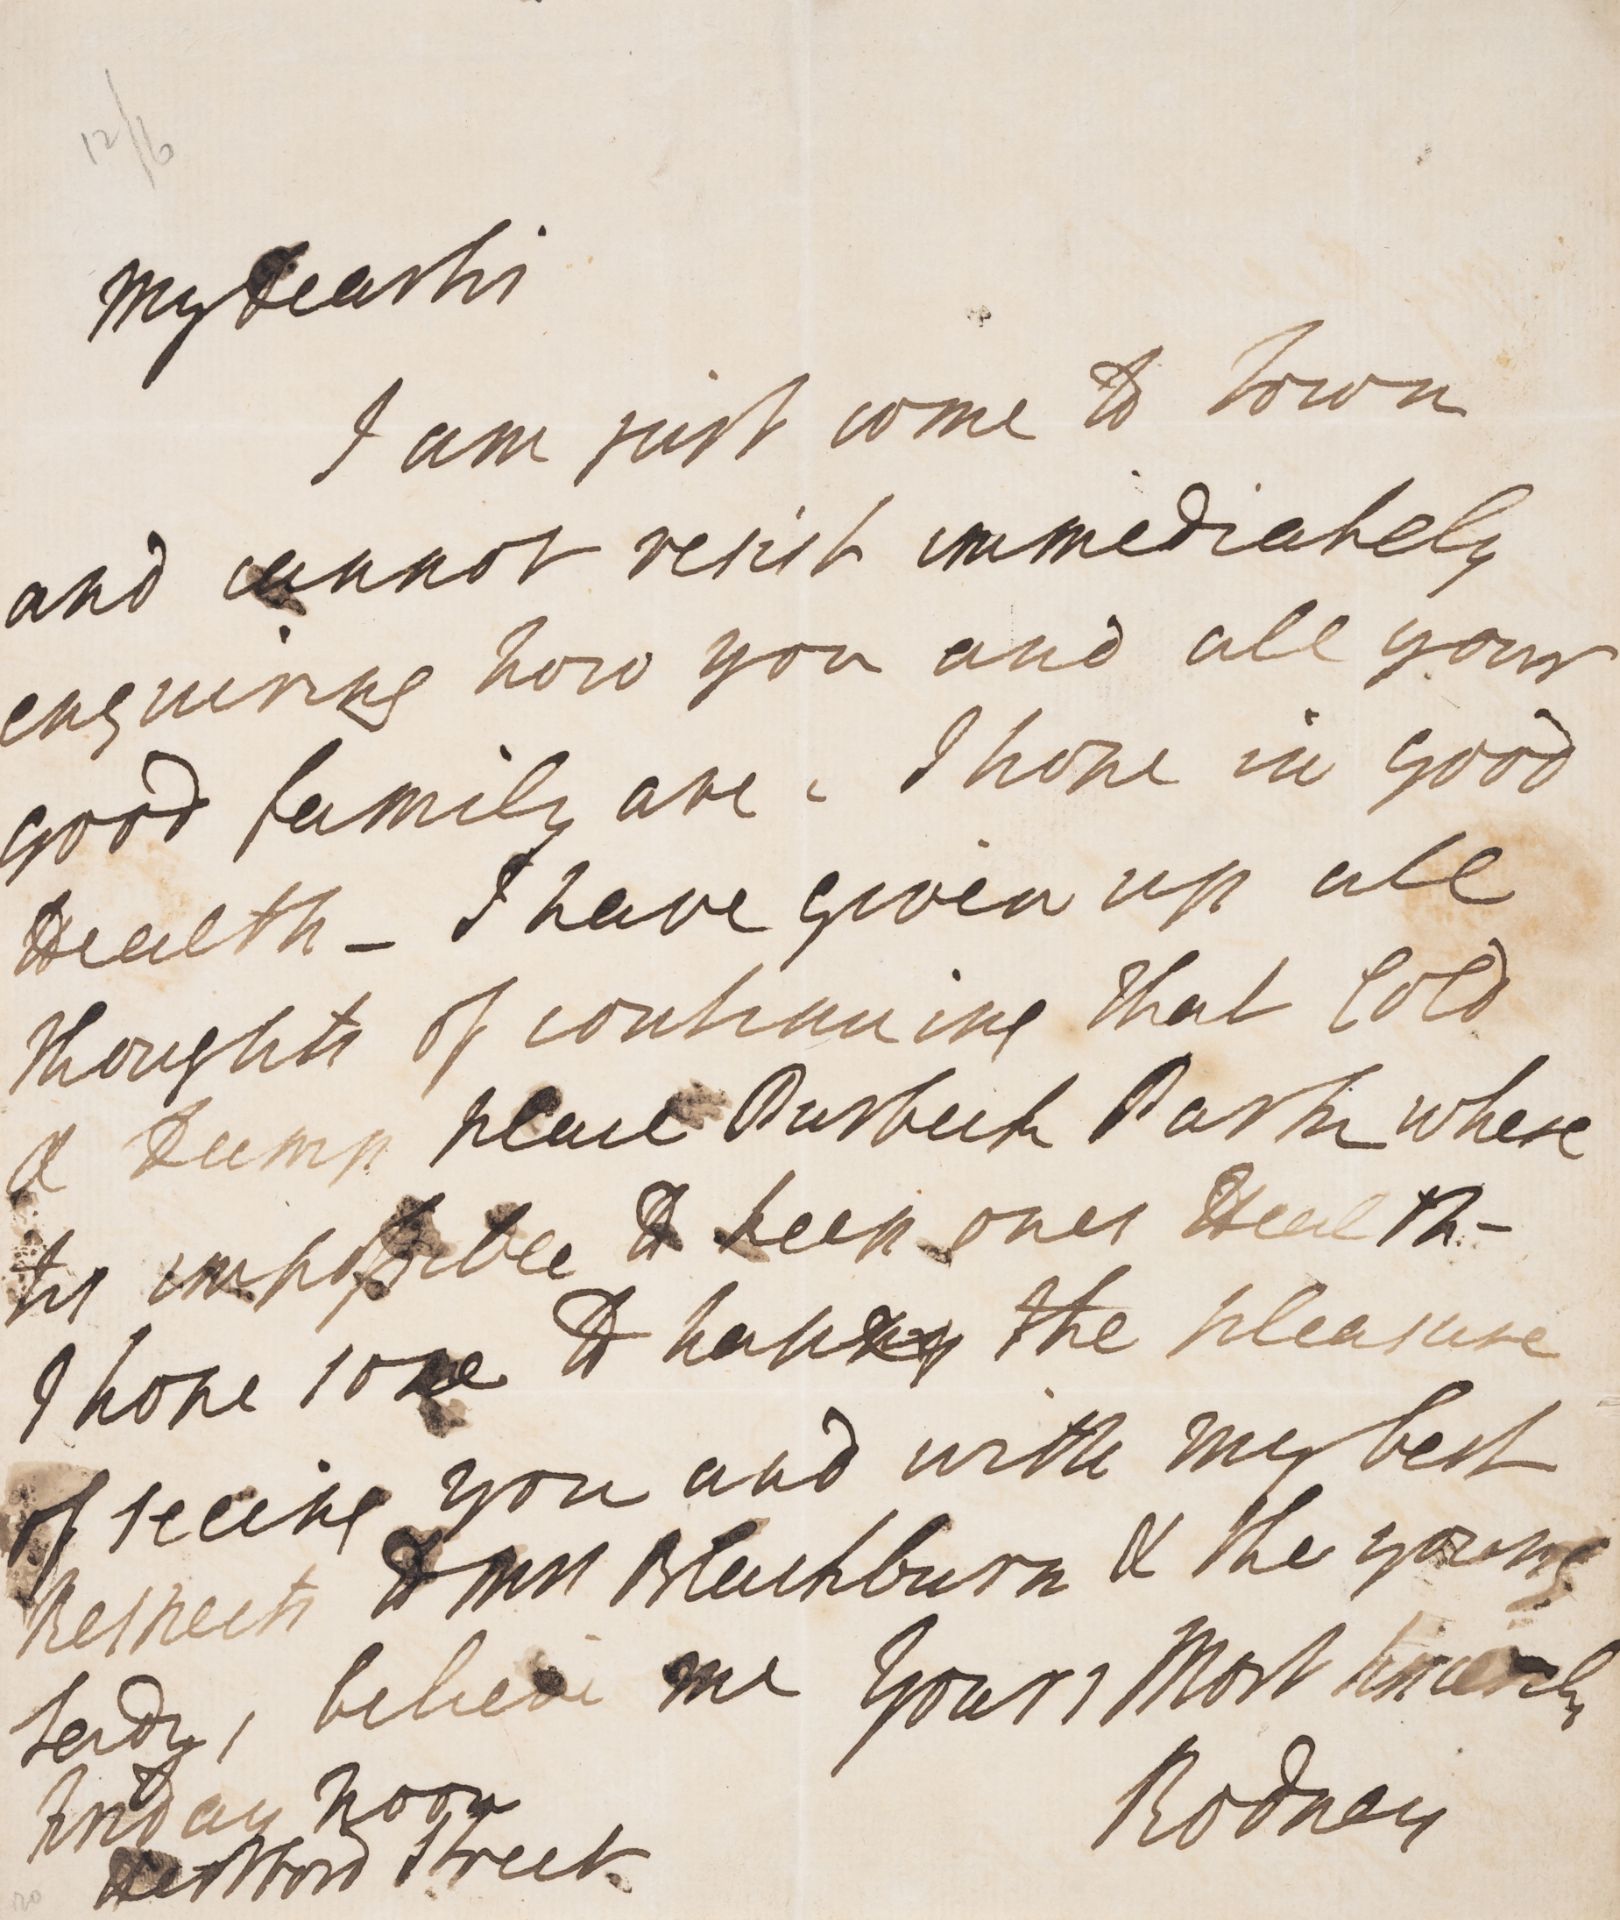 12/6
My Dear Sir
I am just come to Town
and cannot resist immediately
enquiring how you and all your
good family are, I hope in good
Health - I have given up all
thoughts of continuing that Cold
& Damp place Purbeck Park where
tis impossible to keep ones Health -
I hope soon to have the pleasure
of seeing you and with my best
Respects to Mrs Blackburn & the young
Lady, believe me Yours Most Sincerely
Rodney
Friday Noon
Hertford Street